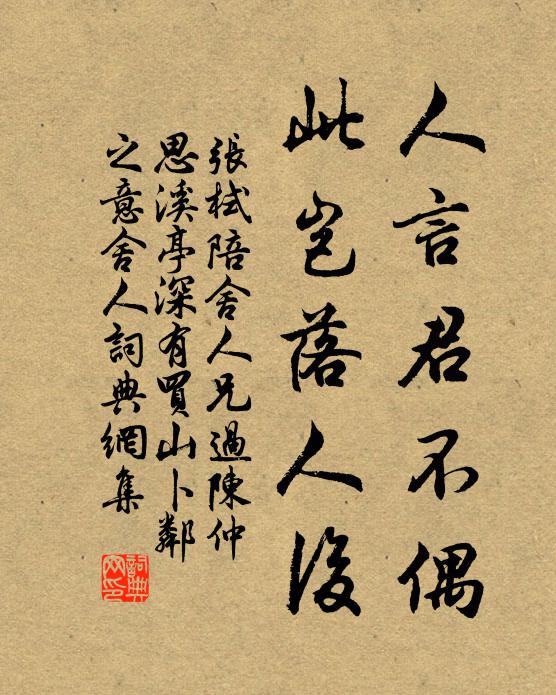 人言君不偶
此豈落人後
張栻陪舍人兄過陳仲
思溪亭深有買山卜鄰
之意舍人詞典網集
詞典网印